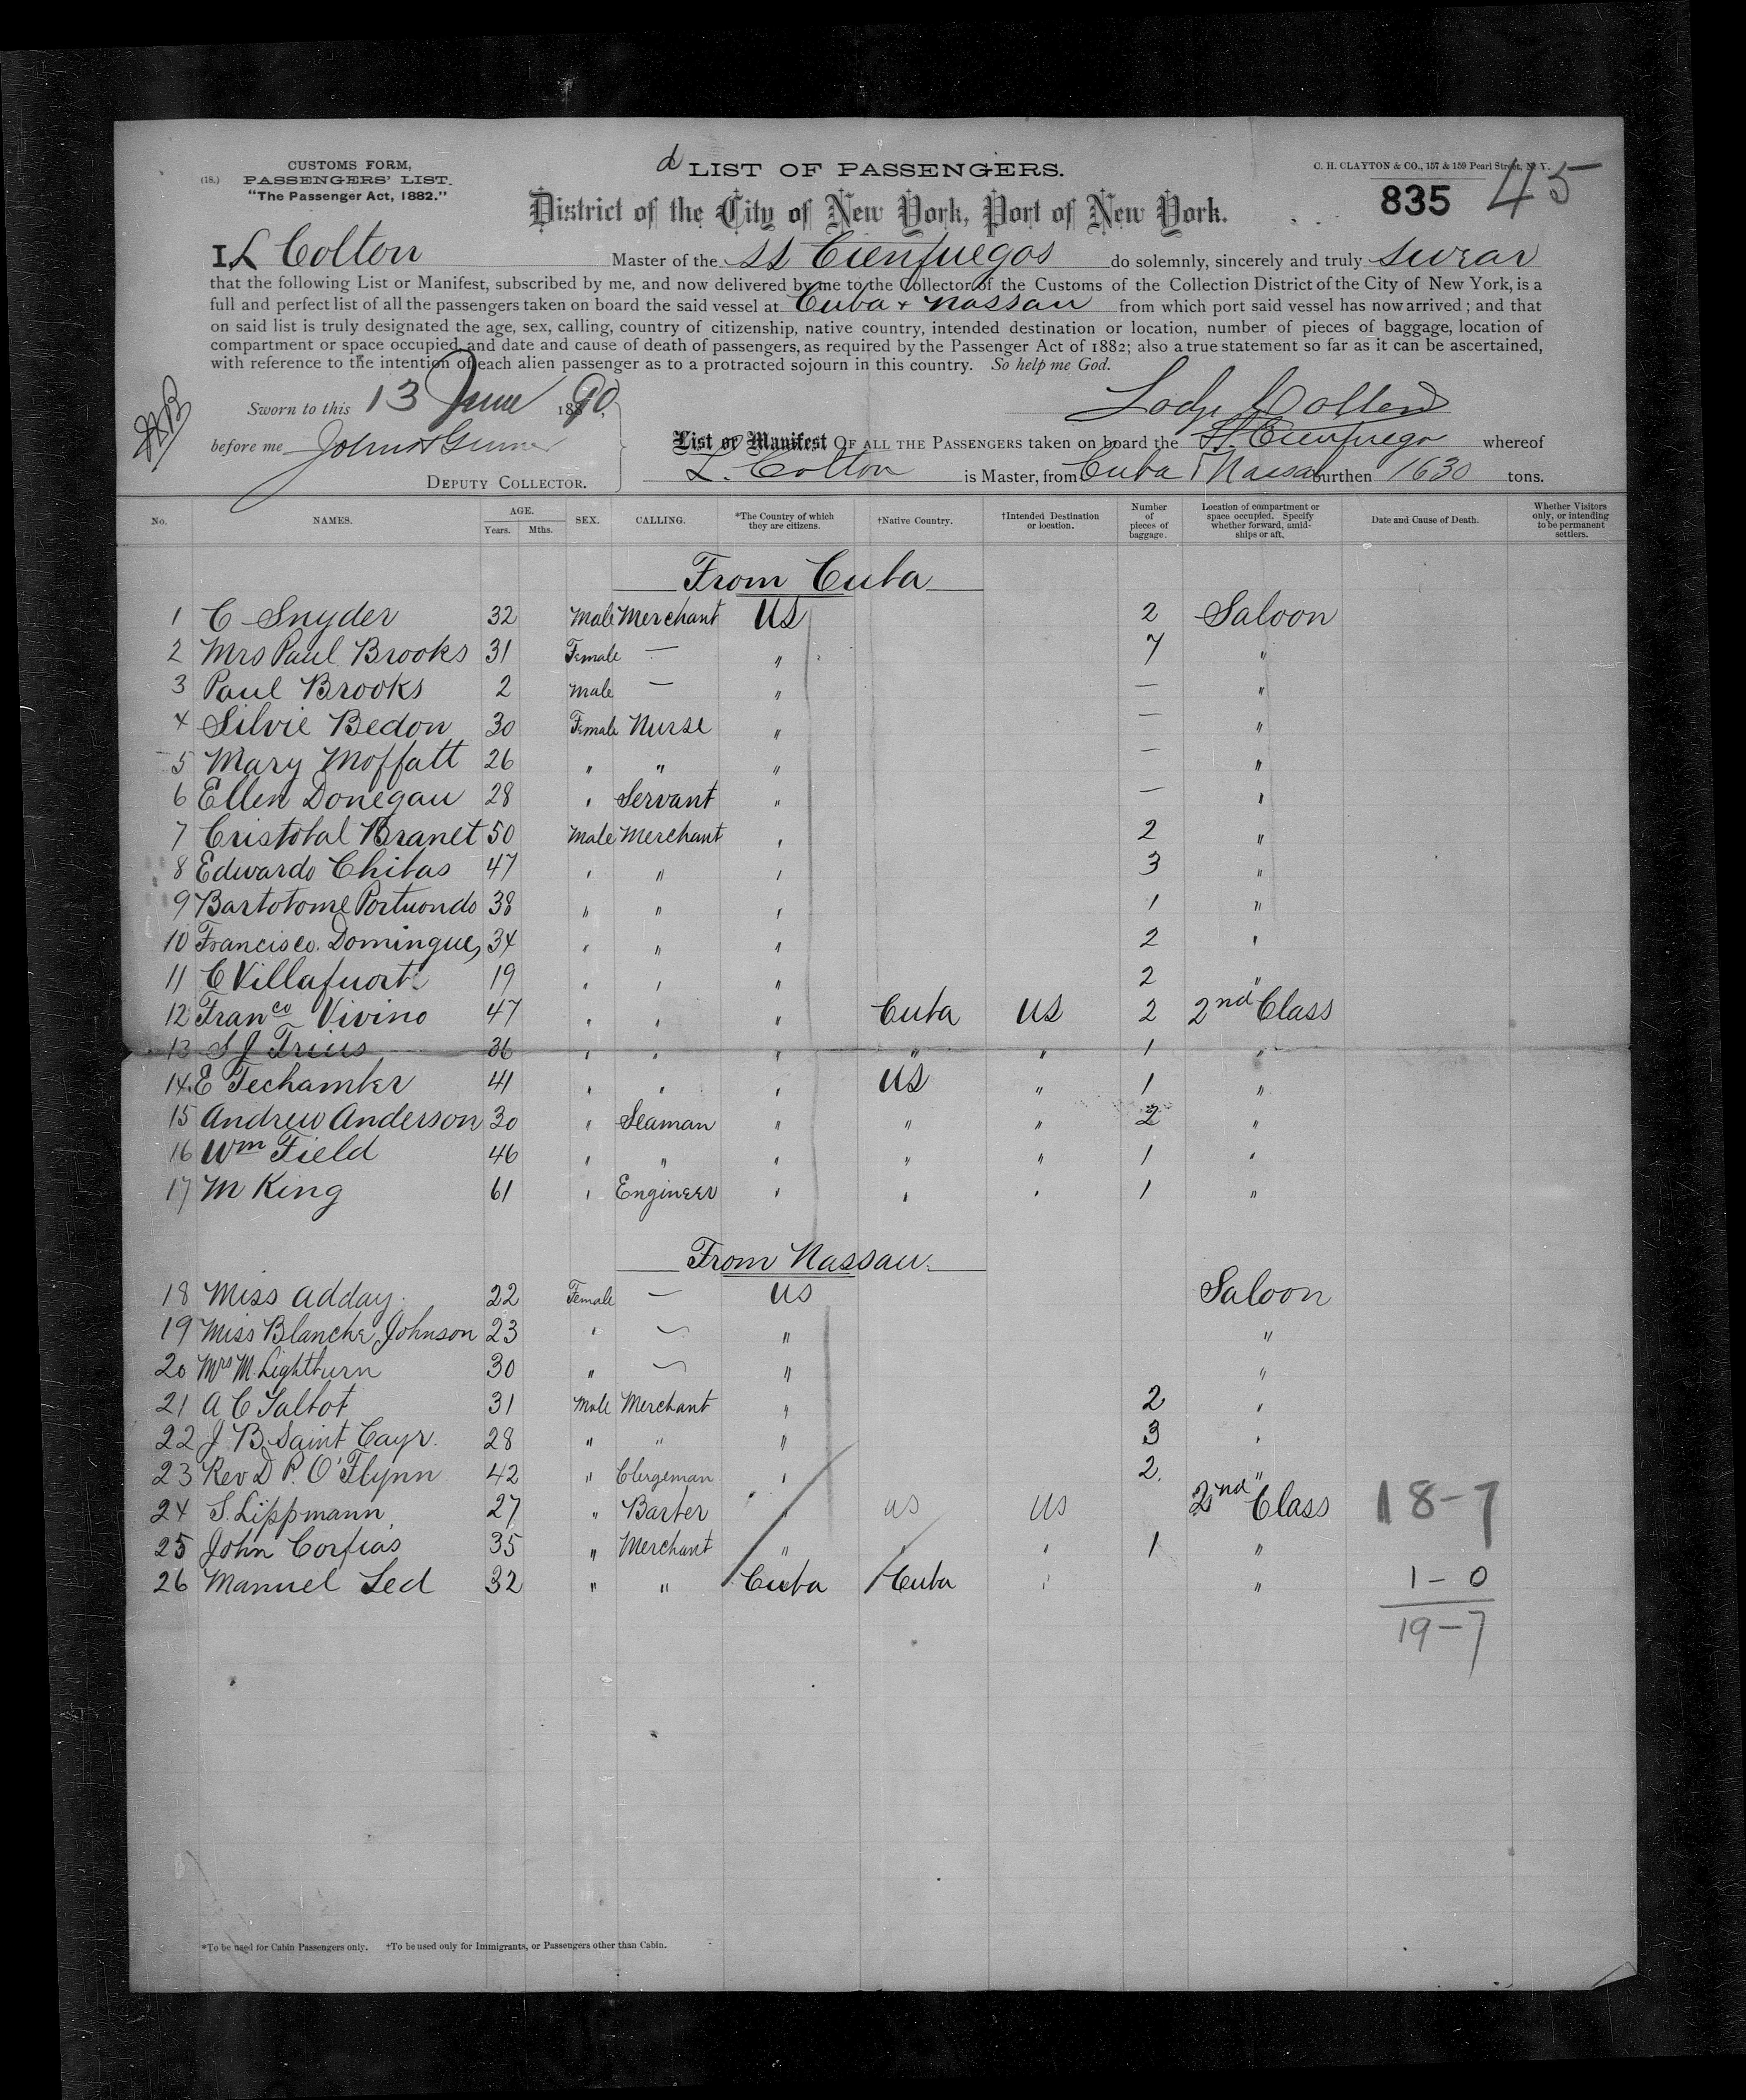 CUSTOMS FORM,
(18.) PASSENGERS' LIST.
"The Passenger Act, 1882."
d LIST OF PASSENGERS.
C. H. CLAYTON & CO., 157 & 159 Pearl Street, N. Y.
835 45
District of the City of New York, Port of New York.
I L Colton Master of the SS Cienfuegos do solemnly, sincerely and truly swear
that the following List or Manifest, subscribed by me, and now delivered by me to the Collector of the Customs of the Collection District of the City of New York, is a
full and perfect list of all the passengers taken on board the said vessel at Cuba + Nassau from which port said vessel has now arrived; and that
on said list is truly designated the age, sex, calling, country of citizenship, native country, intended destination or location, number of pieces of baggage, location of
compartment or space occupied, and date and cause of death of passengers, as required by the Passenger Act of 1882; also a true statement so far as it can be ascertained,
with reference to the intention of each alien passenger as to a protracted sojourn in this country. So help me God.
Sworn to this 13 June 1890
Colton
before me
DEPUTY COLLECTOR.
List or Manifest OF ALL THE PASSENGERS taken on board the SS. Cienfuego whereof
L. Colton is Master, from Cuba & Nassau burthen 1630 tons.
No. NAMES. AGE. Years. Mths. SEX. CALLING. *The Country of which they are citizens. †Native Country. †Intended Destination or location. Number of pieces of baggage. Location of compartment or space occupied. Specify whether forward, amidships or aft. Date and Cause of Death. Whether Visitors only, or intending to be permanent settlers.
From Cuba
1 C Snyder 32 Male Merchant US 2 Saloon
2 Mrs Paul Brooks 31 Female — " 7 "
3 Paul Brooks 2 Male — " — "
4 Silvie Bedon 30 Female Nurse " — "
5 Mary Moffatt 26 " " " — "
6 Ellen Donegau 28 " Servant " — "
7 Cristobal Branet 50 Male Merchant " 2 "
8 Edwardo Chibas 47 " " " 3 "
9 Bartotome Portuondo 38 " " " 1 "
10 Francisco. Domingues 34 " " " 2 "
11 C Villafuort 19 " " " 2 "
12 Franco Vivino 47 " " " Cuba US 2 2nd Class
13 S J Trius 36 " " " " " 1 "
14 E Techamber 41 " " " US " 1 "
15 Andrew Anderson 30 " Seaman " " " 2 "
16 Wm Field 46 " " " " " 1 "
17 M King 61 " Engineer " " " 1 "
From Nassau
18 Miss Adday 22 Female — US Saloon
19 Miss Blanche Johnson 23 " — " "
20 Mrs M. Lightburn 30 " — " "
21 A C Talbot 31 Male Merchant " 2 "
22 J B. Saint Cayr. 28 " " " 3 "
23 Rev D P. O'Flynn 42 " Clergeman " 2. "
24 S. Lippmann 27 " Barber " US US 2nd Class 18-7
25 John Corfias 35 " Merchant " " " 1 "
26 Manuel Led 32 " " Cuba Cuba " " 1-0
19-7
*To be used for Cabin Passengers only. †To be used only for Immigrants, or Passengers other than Cabin.